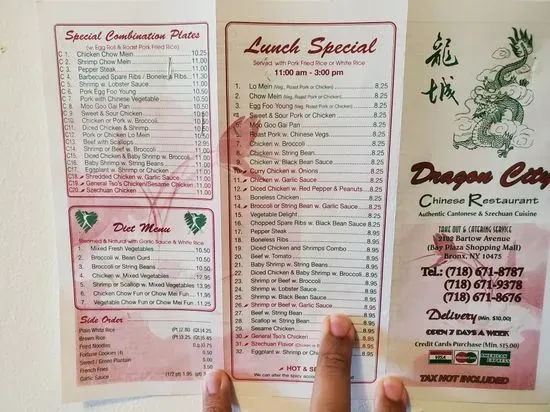 Special Combination Plates
(w. Egg Roll & Roast Pork Fried Rice)
C 1. Chicken Chow Mein 10.25
C 2. Shrimp Chow Mein
C 3. Pepper Steak 11.00
C 4. Barbecued Spare Ribs / Boneless Ribs 11.30
C 5. Shrimp w. Lobster Sauce 11.00
C 6. Pork Egg Foo Young
C 7. Pork with Chinese Vegetable
C 8. Moo Goo Gai Pan
C 9. Sweet & Sour Chicken
C10. Chicken or Pork w. Broccoli
C11. Diced Chicken & Shrimp
C12. Pork or Chicken Lo Mein
C13. Beef with Scallops
C14. Shrimp or Beef w. Broccoli 11.00
C15. Diced Chicken & Baby Shrimp w. Broccoli 11.00
C16. Baby Shrimp w. String Beans 11.00
C17. Eggplant w. Shrimp or Chicken 11.00
C18. Shredded Chicken w. Garlic Sauce 11.00
C19. General Tso's Chicken/Sesame Chicken 11.00
C20. Szechuan Chicken 11.00
Diet Menu
Steamed & Natural with Garlic Sauce & White Rice
1. Mixed Fresh Vegetables 10.50
2. Broccoli w. Bean Curd 10.50
3. Broccoli or String Beans 10.50
4. Chicken w. Mixed Vegetables 12.95
5. Shrimp or Scallop w. Mixed Vegetables 13.95
6. Chicken Chow Fun or Chow Mei Fun 11.95
7. Vegetable Chow Fun or Chow Mei Fun 11.95
Side Order
Plain White Rice (Pt.)2.80 (Qt.)4.50
Brown Rice (Pt.)3.25 (Qt.)5.45
Fried Noodles
Fortune Cookies (4)
Sweet / Green Plantain
French Fries
Garlic Sauce (1/2 pt)
Lunch Special
Served with Pork Fried Rice or White Rice
11:00 am - 3:00 pm
1. Lo Mein (Veg., Roast Pork or Chicken) 8.25
2. Chow Mein (Veg., Roast Pork or Chicken) 8.25
3. Egg Foo Young (Veg., Roast Pork or Chicken) 8.25
4. Sweet & Sour Pork or Chicken 8.25
5. Moo Goo Gai Pan 8.25
6. Roast Pork w. Chinese Vegs. 8.25
7. Chicken w. Broccoli 8.25
8. Chicken w. String Bean 8.25
9. Chicken w. Black Bean Sauce 8.25
10. Curry Chicken w. Onions 8.25
11. Chicken w. Garlic Sauce 8.25
12. Diced Chicken w. Red Pepper & Peanuts 8.25
13. Boneless Chicken 8.25
14. Broccoli or String Bean w. Garlic Sauce 8.25
15. Vegetable Delight 8.25
16. Chopped Spare Ribs w. Black Bean Sauce 8.25
17. Pepper Steak 8.95
18. Boneless Ribs 8.95
19. Diced Chicken and Shrimps Combo 8.95
20. Beef w. Tomato 8.95
21. Baby Shrimp w. String Beans 8.95
22. Diced Chicken & Baby Shrimp w. Broccoli 8.95
23. Shrimp or Beef w. Broccoli 8.95
24. Shrimp w. Lobster Sauce 8.95
25. Shrimp w. Black Bean Sauce 8.95
26. Shrimp or Beef w. Garlic Sauce 8.95
27. Beef w. String Bean 8.95
28. Scallop w. String Bean 8.95
29. Sesame Chicken 8.95
30. General Tso's Chicken 8.95
31. Szechuan Flavor (Chicken or 8.95
32. Eggplant w. Shrimp or Chicken 8.95
HOT &
We can alter the spicy
龍城
Dragon City
Chinese Restaurant
Authentic Cantonese & Szechuan Cuisine
TAKE OUT & CATERING SERVICE
2102 Bartow Avenue
(Bay Plaza Shopping Mall)
Bronx, NY 10475
Tel.: (718) 671-8787
(718) 671-9378
(718) 671-8676
Delivery (Min. $10.00)
OPEN 7 DAYS A WEEK
Credit Cards Purchase (Min. $15.00)
VISA MasterCard AMERICAN EXPRESS
TAX NOT INCLUDED